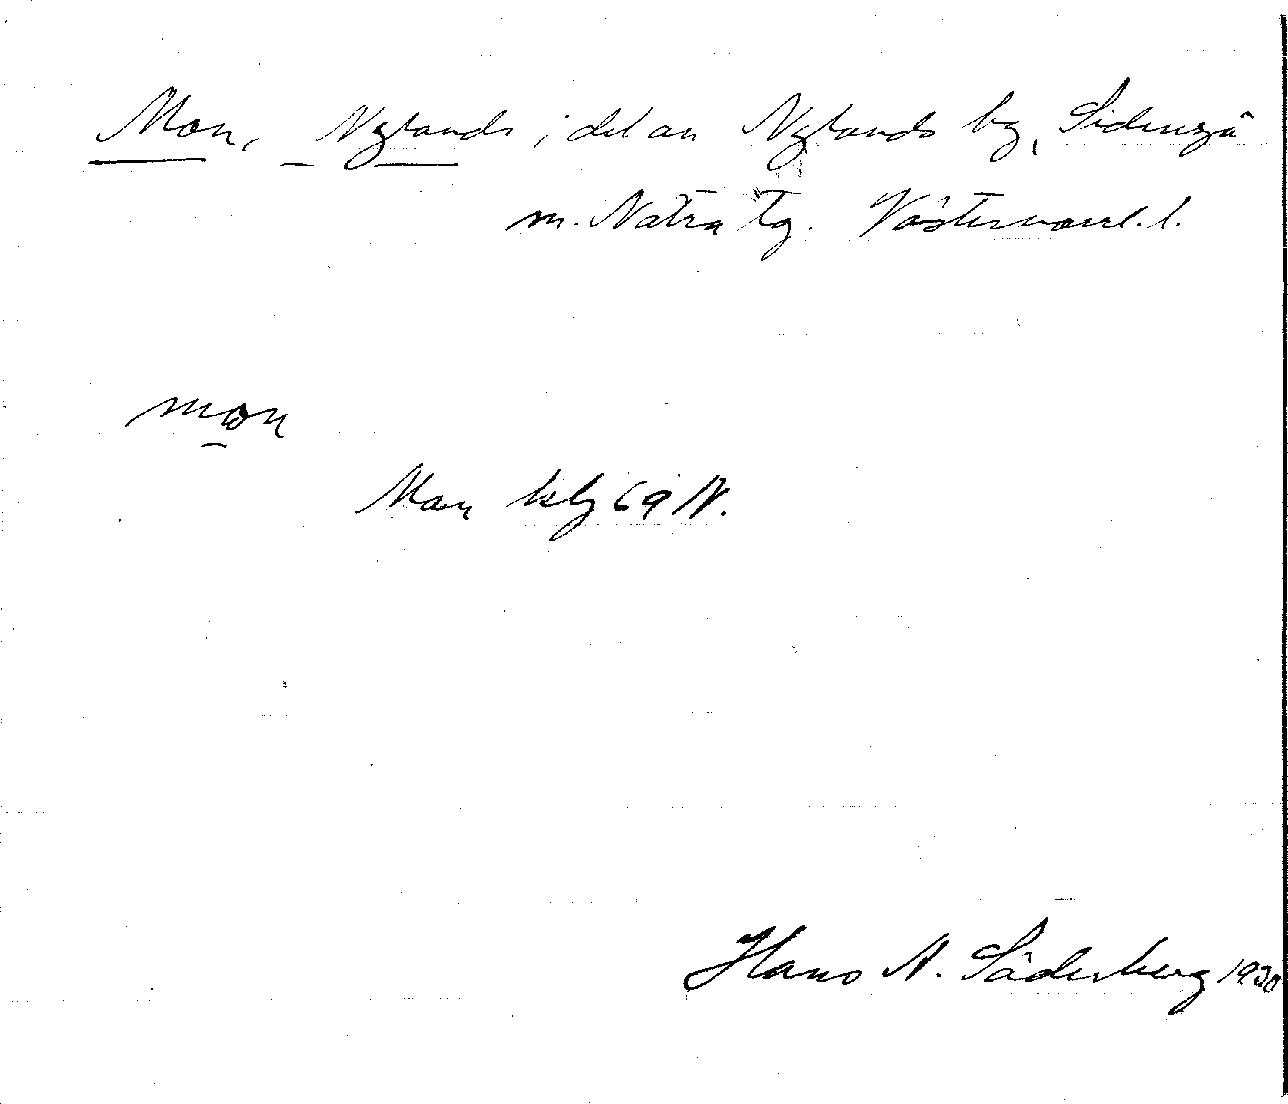 Mon, Nylands; del av Nylands by, Sidensjö
m. Nätra tg. Västernorrl. l.
mon
Mon kbl 69 N.
Hans A. Söderberg 1930